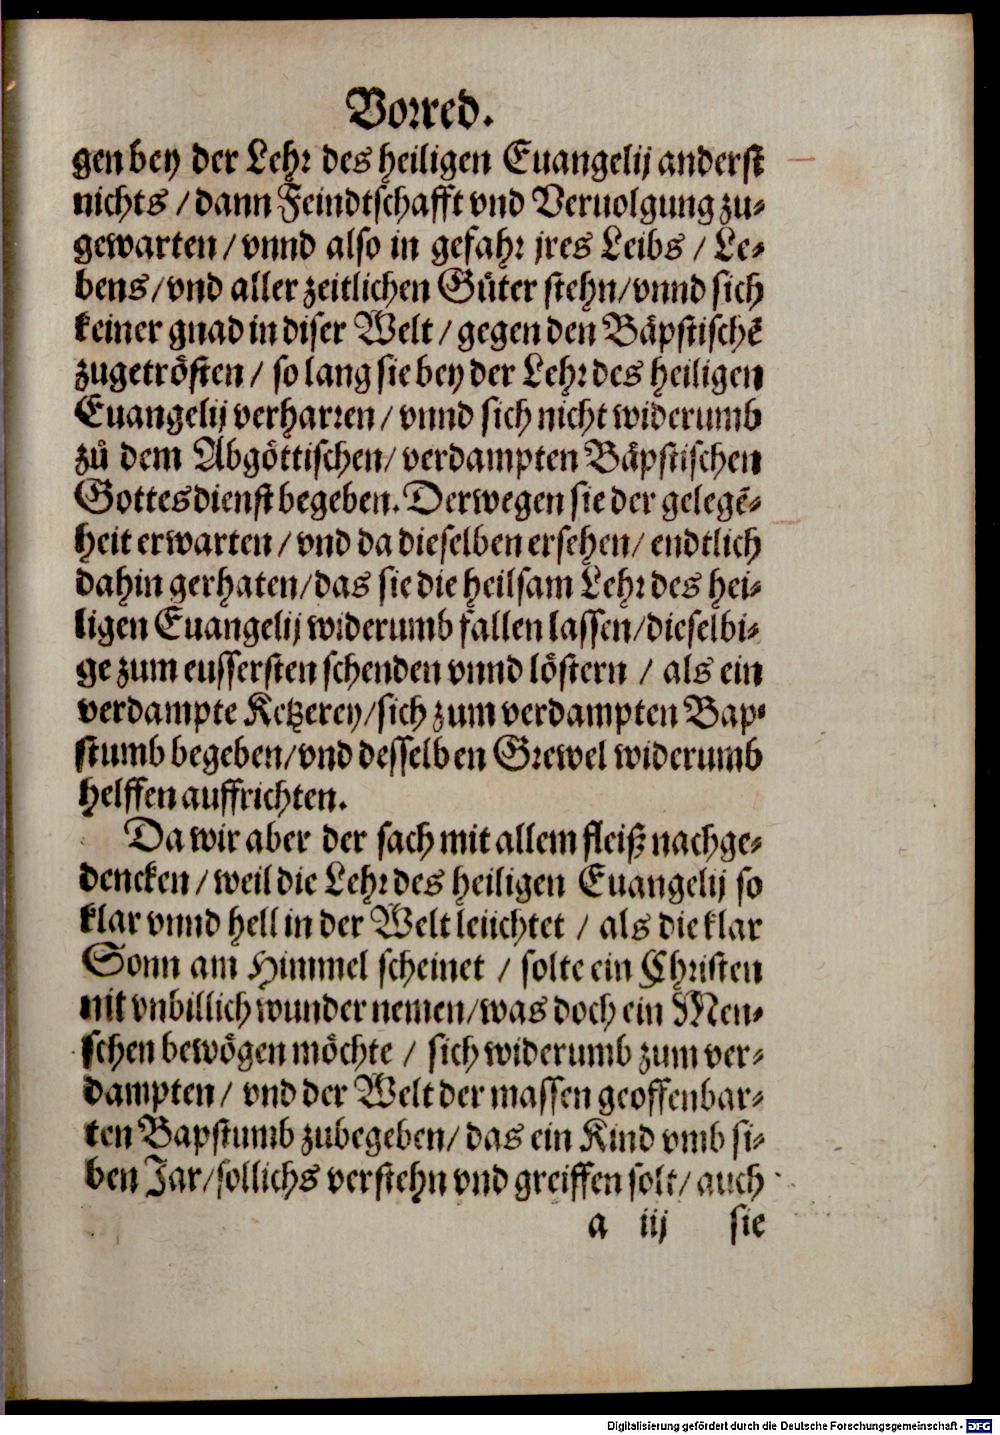 Vorred.
gen bey der Lehr des heiligen Euangelij anderst
nichts / dann Feindtschafft vnd Veruolgung zu-
gewarten / vnnd also in gefahr jres Leibs / Le-
bens / vnd aller zeitlichen Güter stehn / vnnd sich
keiner gnad in diser Welt / gegen den Bäpstischẽ
zugetrösten / so lang sie bey der Lehr des heiligen
Euangelij verharren / vnnd sich nicht widerumb
zů dem Abgöttischen / verdampten Bäpstischen
Gottesdienst begeben. Derwegen sie der gelegẽ-
heit erwarten / vnd da dieselben ersehen / endtlich
dahin gerhaten / das sie die heilsam Lehr des hei-
ligen Euangelij widerumb fallen lassen / dieselbi-
ge zum eussersten schenden vnnd löstern / als ein
verdampte Ketzerey / sich zum verdampten Bap-
stumb begeben / vnd desselben Grewel widerumb
helffen auffrichten.
Da wir aber der sach mit allem fleiß nachge-
dencken / weil die Lehr des heiligen Euangelij so
klar vnnd hell in der Welt leüchtet / als die klar
Sonn am Himmel scheinet / solte ein Christen
nit vnbillich wunder nemen / was doch ein Men-
schen bewögen möchte / sich widerumb zum ver-
dampten / vnd der Welt der massen geoffenbar-
ten Bapstumb zubegeben / das ein Kind vmb si-
ben Jar / sollichs verstehn vnd greiffen solt / auch
a iij sie
Digitalisierung gefördert durch die Deutsche Forschungsgemeinschaft - DFG